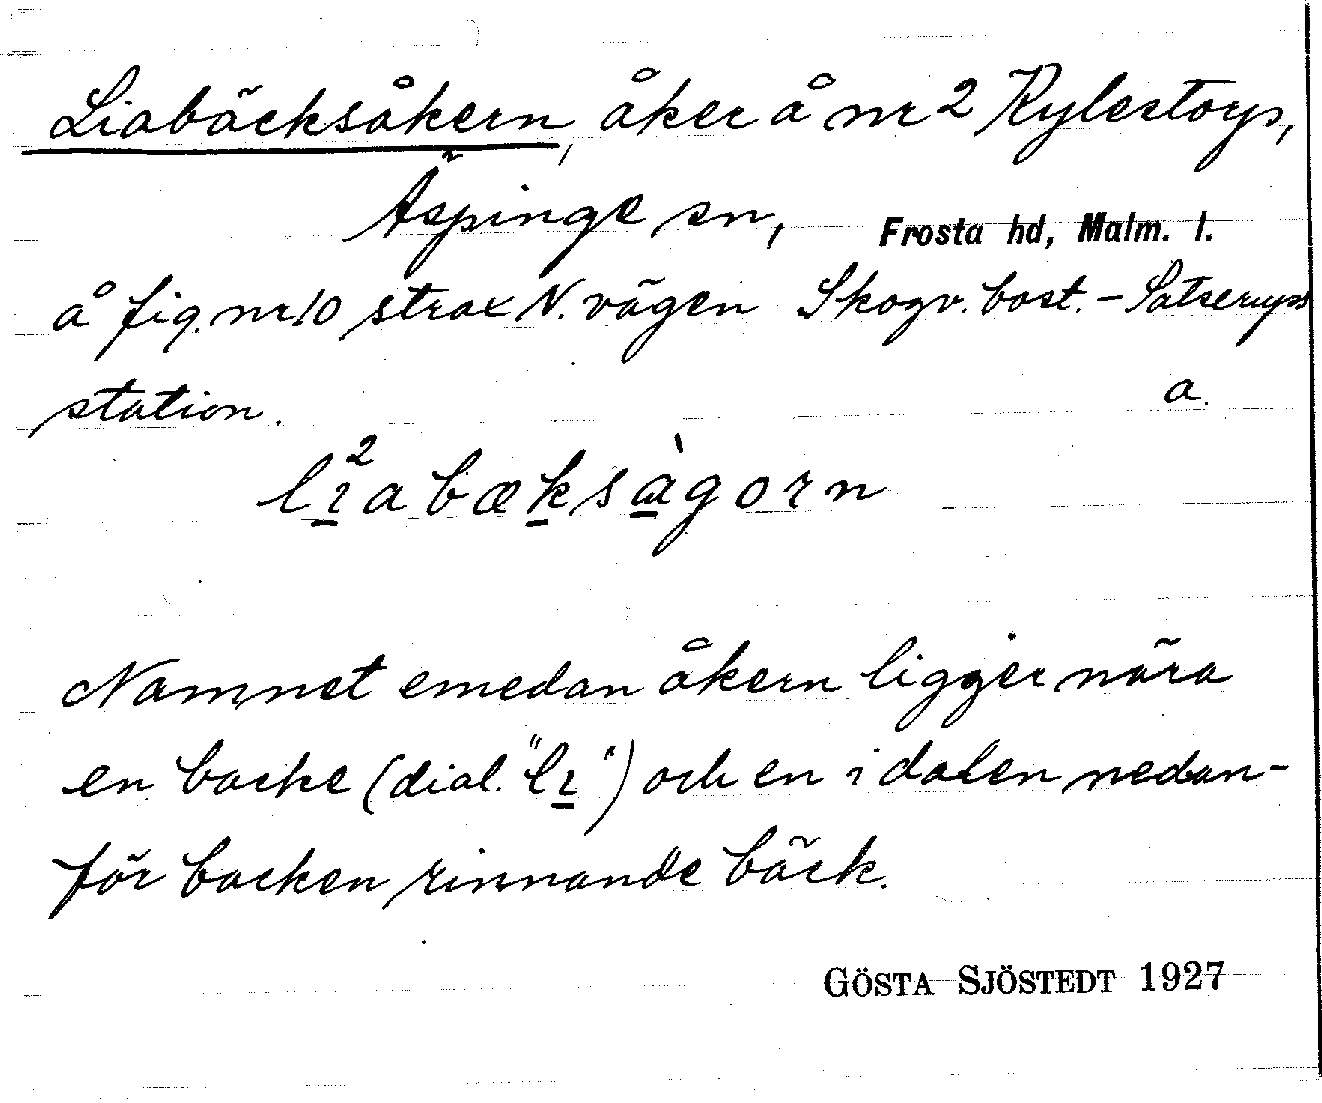 Liabäcksåkern, åker å nr 2 Rylestorp,
Äspinge sn, Frosta hd, Malm. l.
å fig. nr 10 strax N. vägen Skogv. bost. – Satserups
station. a.
lı²abæksàgorn
Namnet emedan åkern ligger nära
en backe (dial. "lı") och en i dalen nedan-
för backen rinnande bäck.
GÖSTA SJÖSTEDT 1927